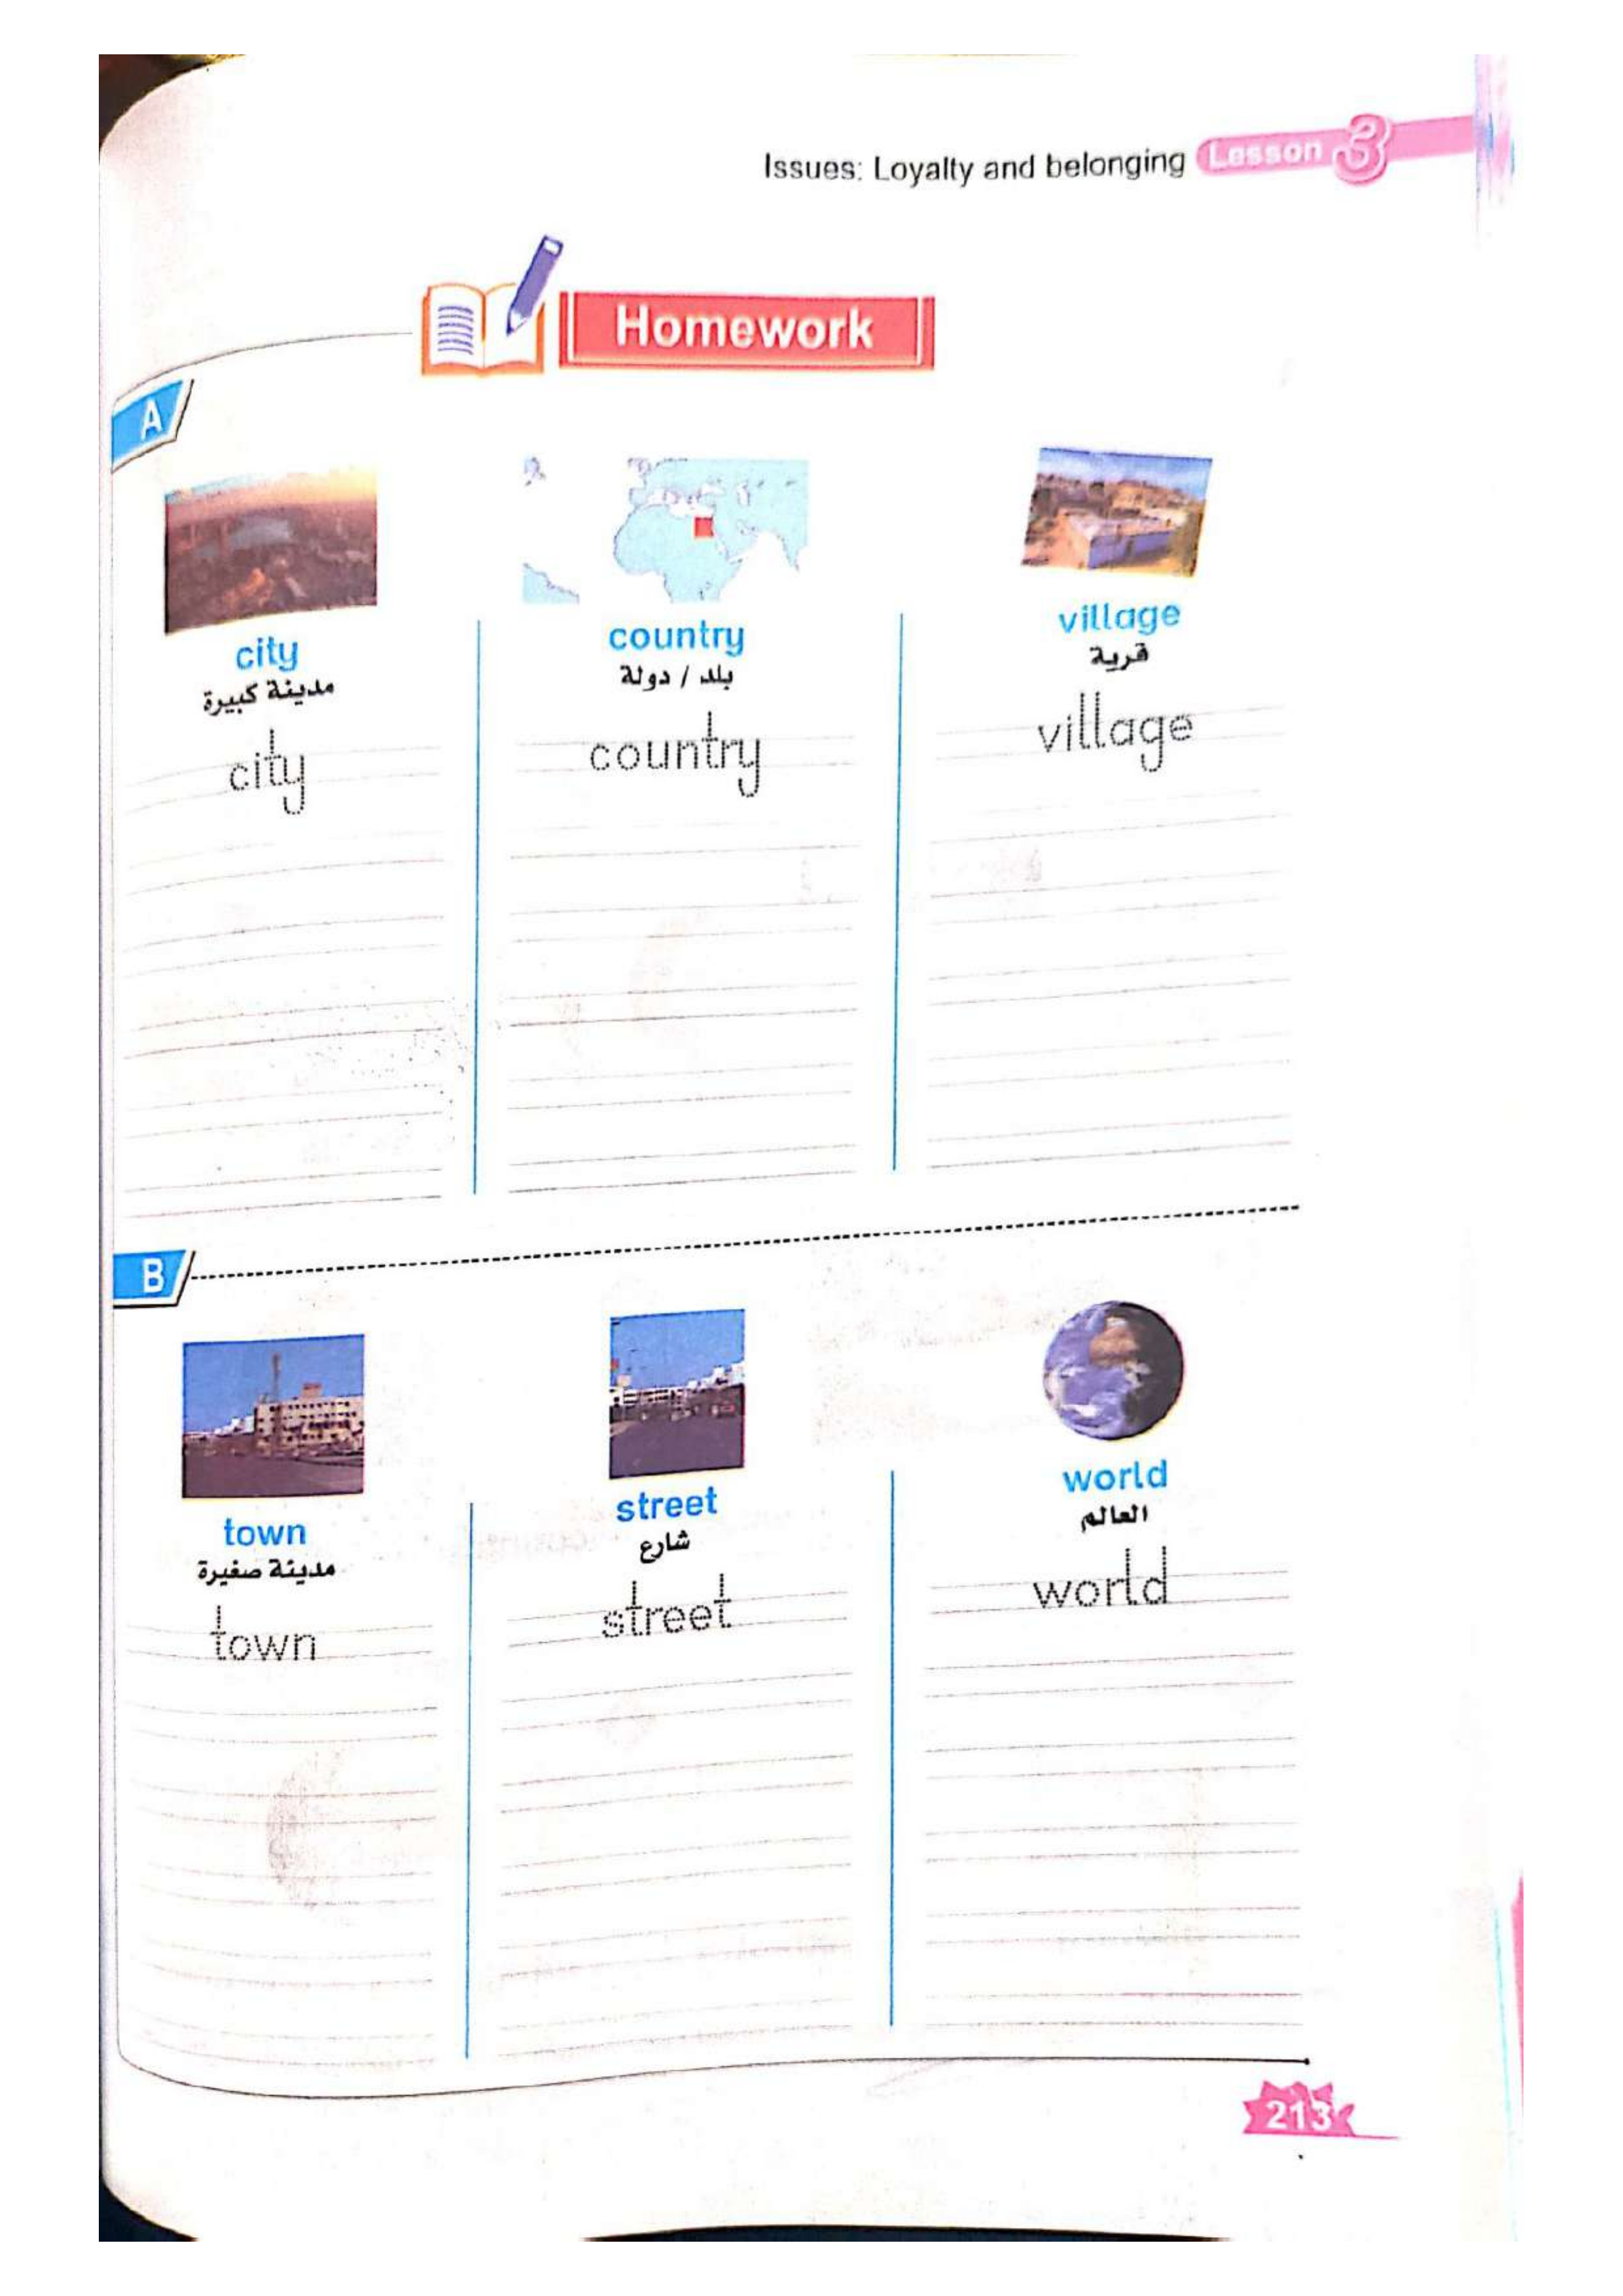 Issues: Loyalty and belonging Lesson 3
Homework
A
city
مدينة كبيرة
city
country
بلد / دولة
country
village
قرية
village
B
town
مدينة صغيرة
town
street
شارع
street
world
العالم
world
213